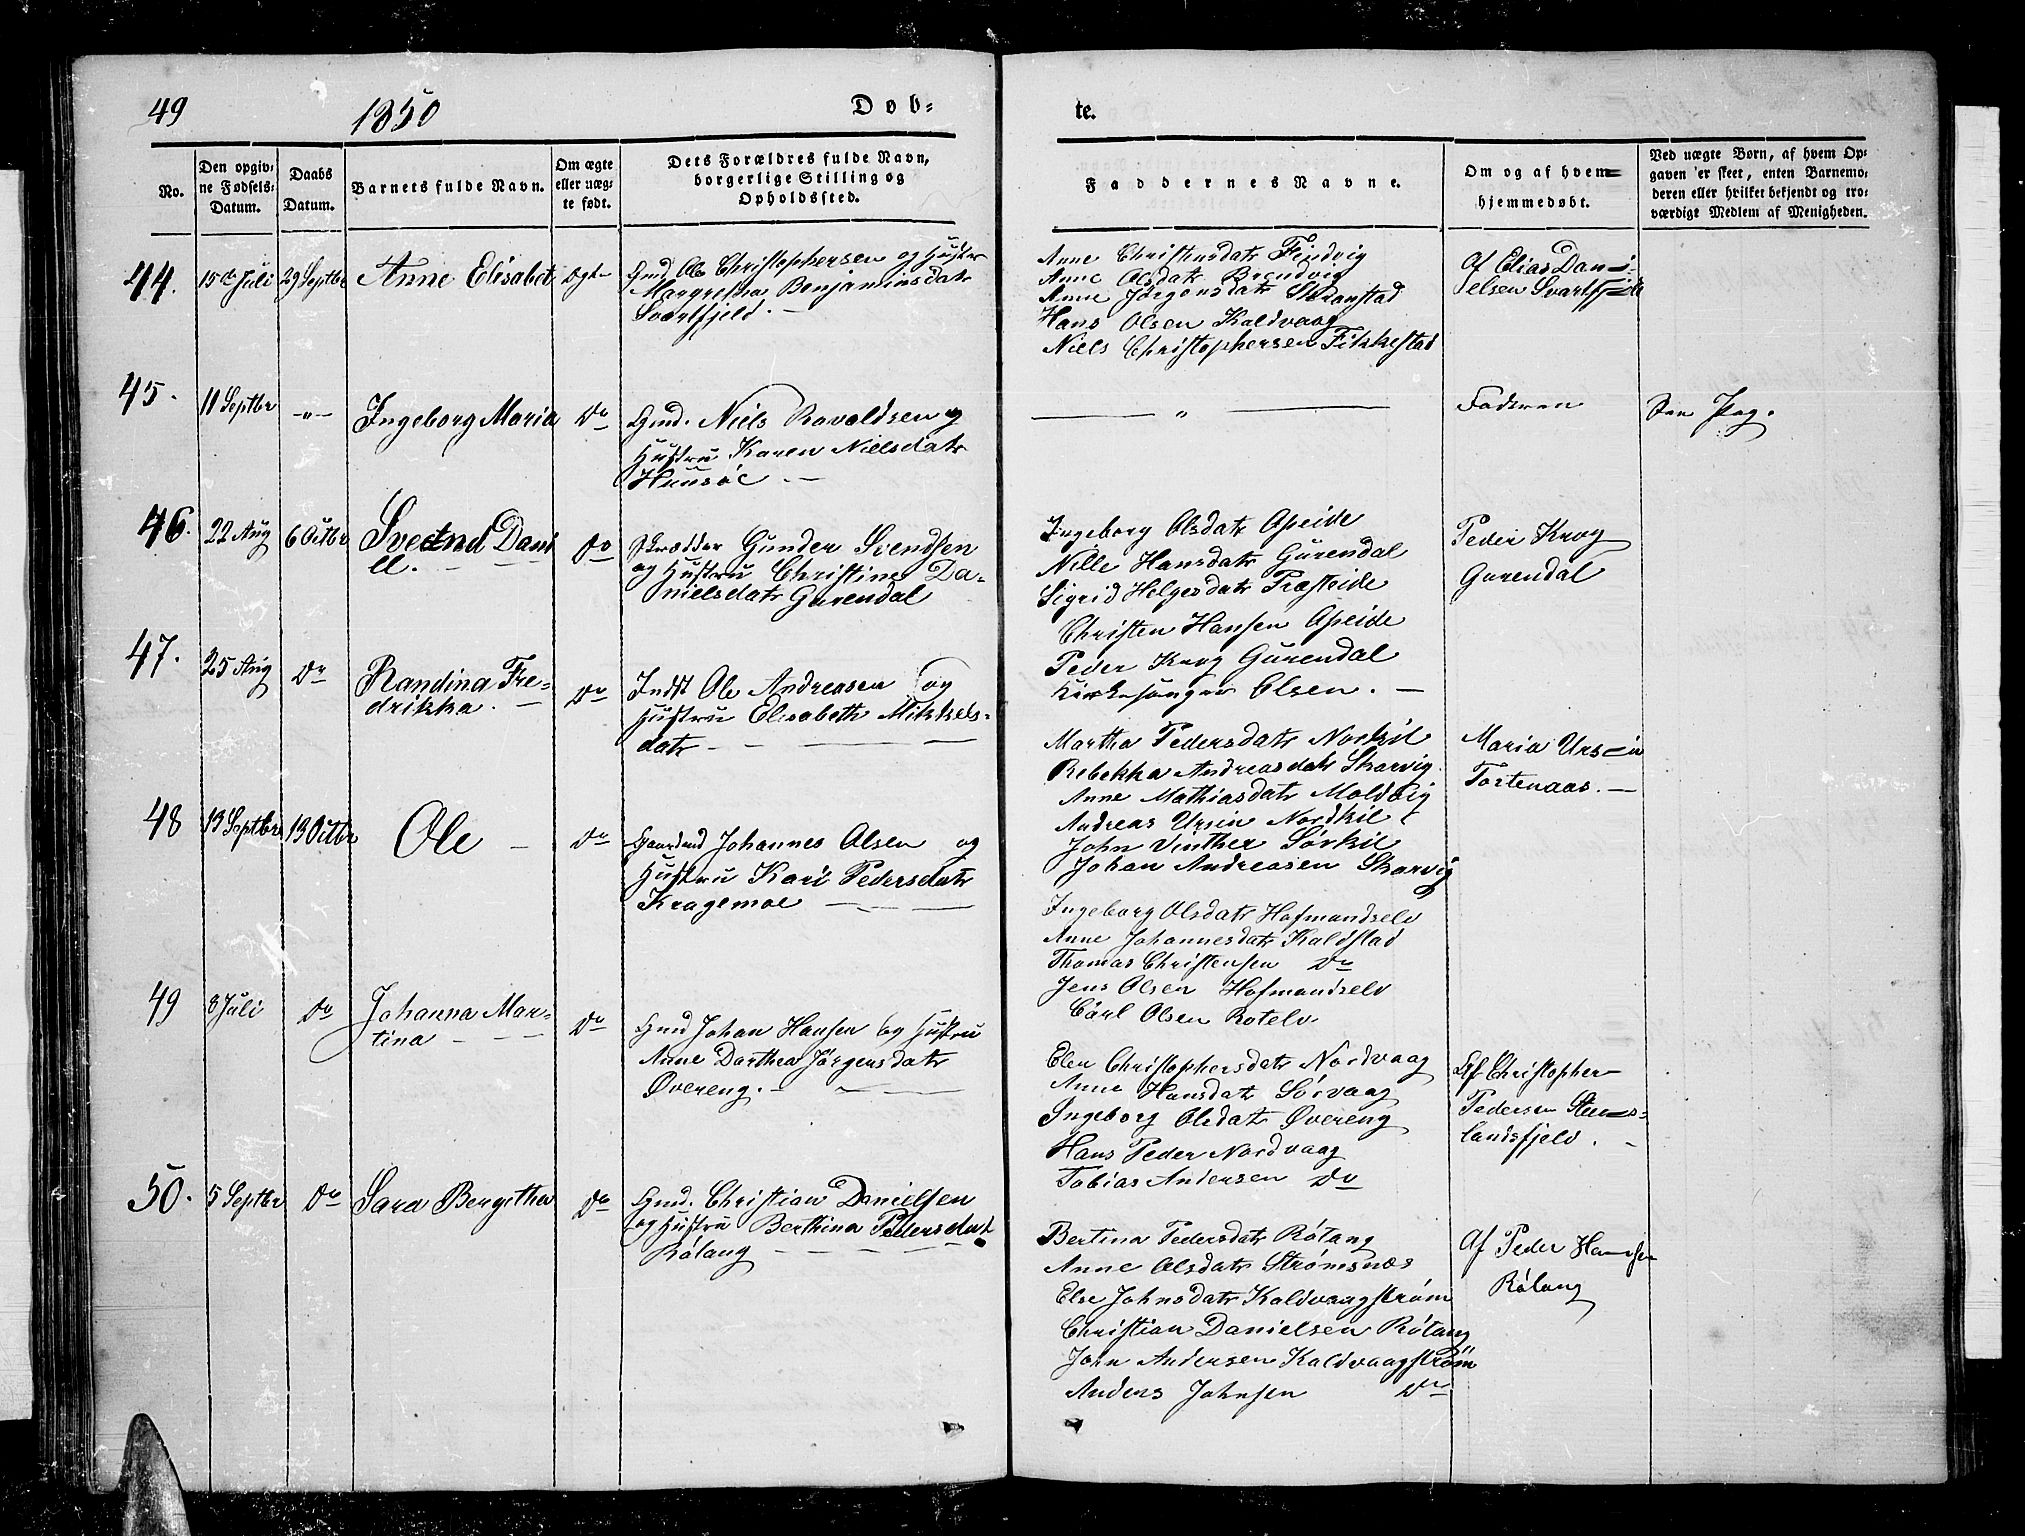 49
1850
Døb-
te.
No.
Den opgiv-
ne Fødsels-
Datum.
Daabs
Datum.
Barnets fulde Navn.
Om ægte
eller uæg-
te født.
Dets Forældres fulde Navn,
borgerlige Stilling og
Opholdssted.
Faddernes Navne.
Om og af hvem
hjemmedøbt.
Ved uægte Børn, af hvem Op-
gaven er skeet, enten Barnemo-
deren eller hvilket bekjendt og tro-
værdigt Medlem af Menigheden.
44.
15de Juli
29 Septbr
Anne Elisabet
Ægte
Gmd Ole Christophersen og Hustru
Margrethe Benjaminsdatr
Svartfjeld. —
Anne Christensdatr Findvig
Anne Olsdatr Brendvig
Anne Jørgensdatr
Hans Olsen Kaldvaag
Niels Christophersen Fikkestad
Af Elias Dani-
elsen Svartfjeld
45.
11 Septbr
—"—
Ingeborg Maria
Do
Gmd. Niels Ravaldsen og
Hustru Karen Nielsdatr
— " —
Faderen
46.
22 Aug
6 Octbr
Svend Dani
el.
Do
Skrædder Gunder Svendsen
og Hustru Christine Da-
nielsdatr Gurendal
Ingeborg Olsdatr Apeide
Nille Hansdatr Gurendal
Sigrid Helgesdatr Præsteide
Christen Hansen Apeide
Peder Krog Gurendal
Kirkesanger Olsen. —
Peder Krog
Gurendal
47.
25 Aug
Do
Randina Fre-
drikka. —
Do
Indst Ole Andreasen og
Hustru Elisabeth Mikkels-
datr — — —
Martha Pedersdatr Norkil
Rebekka Andreasdatr Skarvig
Anne Mathiasdatr Moldvig
Andreas Ursin Nordkil
John Vinther Sørkil
Johan Andreasen Skarvig
Maria Ursin
Tortenaas. —
48
13 Septbr
13 Octbr
Ole —
Do
Gaardmd Johannes Olsen og
Hustru Kari Pedersdatr
Kragemoe — — —
Ingeborg Olsdatr Hofmandselv
Anne Johannesdatr Kaldstad
Thomas Christensen Do
Jens Olsen Hofmandselv
Carl Olsen Botelv
49
8 Juli
Do
Johanna Mar-
tina — — —
Do
Gmd Johan Hansen og Hustru
Anne Dorthea Jørgensdatr
Øvereng. — — —
Elen Christophersdatr Nordvaag
Anne Hansdatr Sørvaag
Ingeborg Olsdatr Øvereng
Hans Peder Nordvaag
Tobias Andersen Do
Af Christopher
Pedersen Steens-
landsfjeld. —
50.
5 Septbr
Do
Sara Bergitha
Do
Gmd. Christian Danielsen
og Hustru Berthina Pedersdat
Rølang — — — —
Bertina Pedersdatr Rølang
Anne Olsdatr Strømsnæs
Else Johnsdatr Kaldvaagstrøm
Christian Danielsen Rølang
John Andersen Kaldvaagstrøm
Anders Johnsen Do
Af Peder Hansen
Rølang